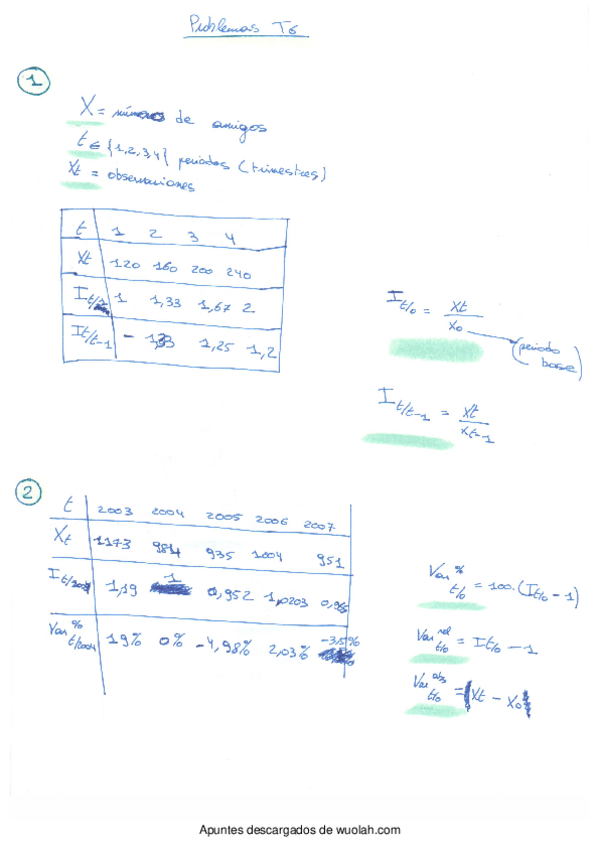 Problemas T6
1
X = número de amigos
t ∈ {1,2,3,4} periodos (trimestres)
Xt = observaciones
t 1 2 3 4
Xt 120 160 200 240
It/1 1 1,33 1,67 2
It/t-1 - 1,33 1,25 1,2
It/0 = Xt / X0 (periodo base)
It/t-1 = Xt / Xt-1
2
t 2003 2004 2005 2006 2007
Xt 1173 984 935 1004 951
It/2004 1,19 1 0,952 1,0203 0,965
Var % t/2004 19% 0% -4,98% 2,03% -3,5%
Var % t/0 = 100·(It/0 - 1)
Var rel t/0 = It/0 - 1
Var abs t/0 = Xt - X0
Apuntes descargados de wuolah.com